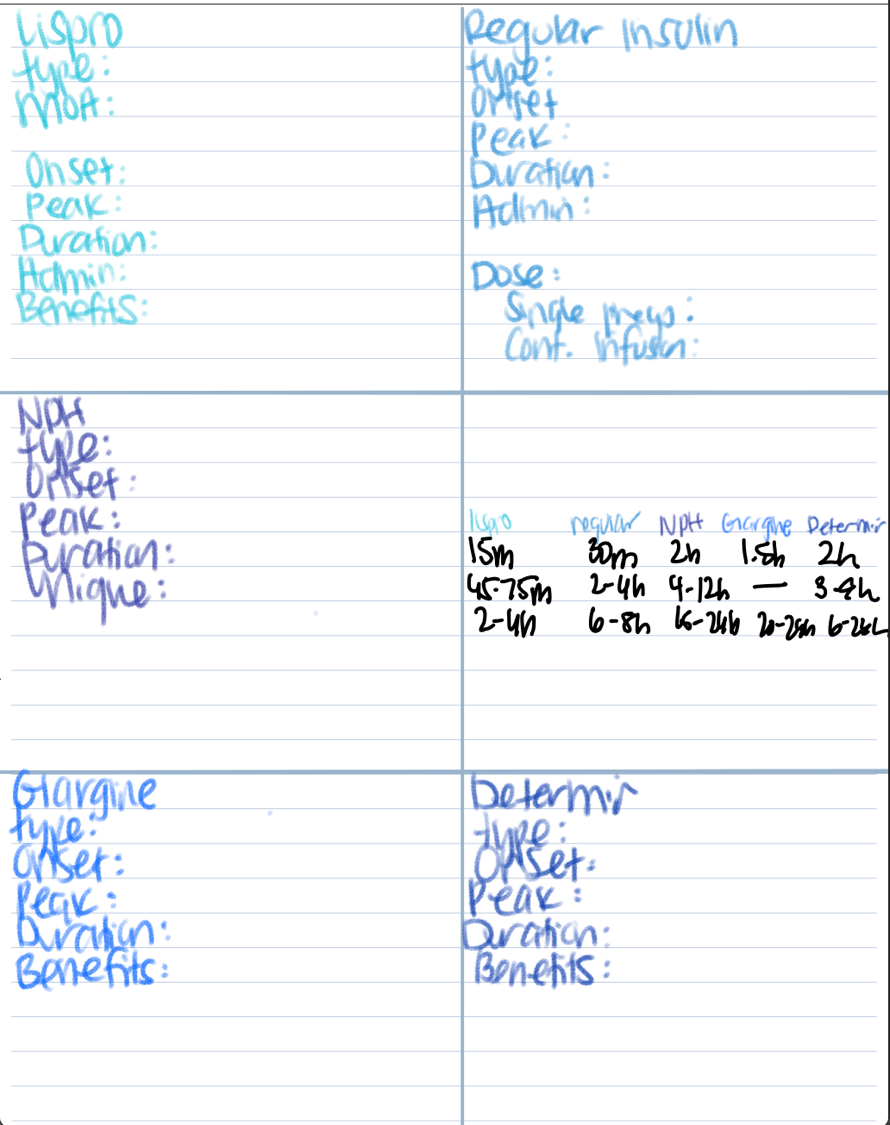 Lispro
type:
MOA:
Onset:
Peak:
Duration:
Admin:
Benefits:
Regular Insulin
type:
Onset
Peak:
Duration:
Admin:
Dose:
Single preys:
Cont. infusion:
NPH
type:
Onset:
Peak:
Duration:
Unique:
lispro regular NPH Glargine Determir
15m 30m 2h 1.5h 2h
45-75m 2-4h 4-12h — 3-9h
2-4h 6-8h 16-24h 20-24h
Glargine
type:
Onset:
Peak:
Duration:
Benefits:
Determir
type:
Onset:
Peak:
Duration:
Benefits: